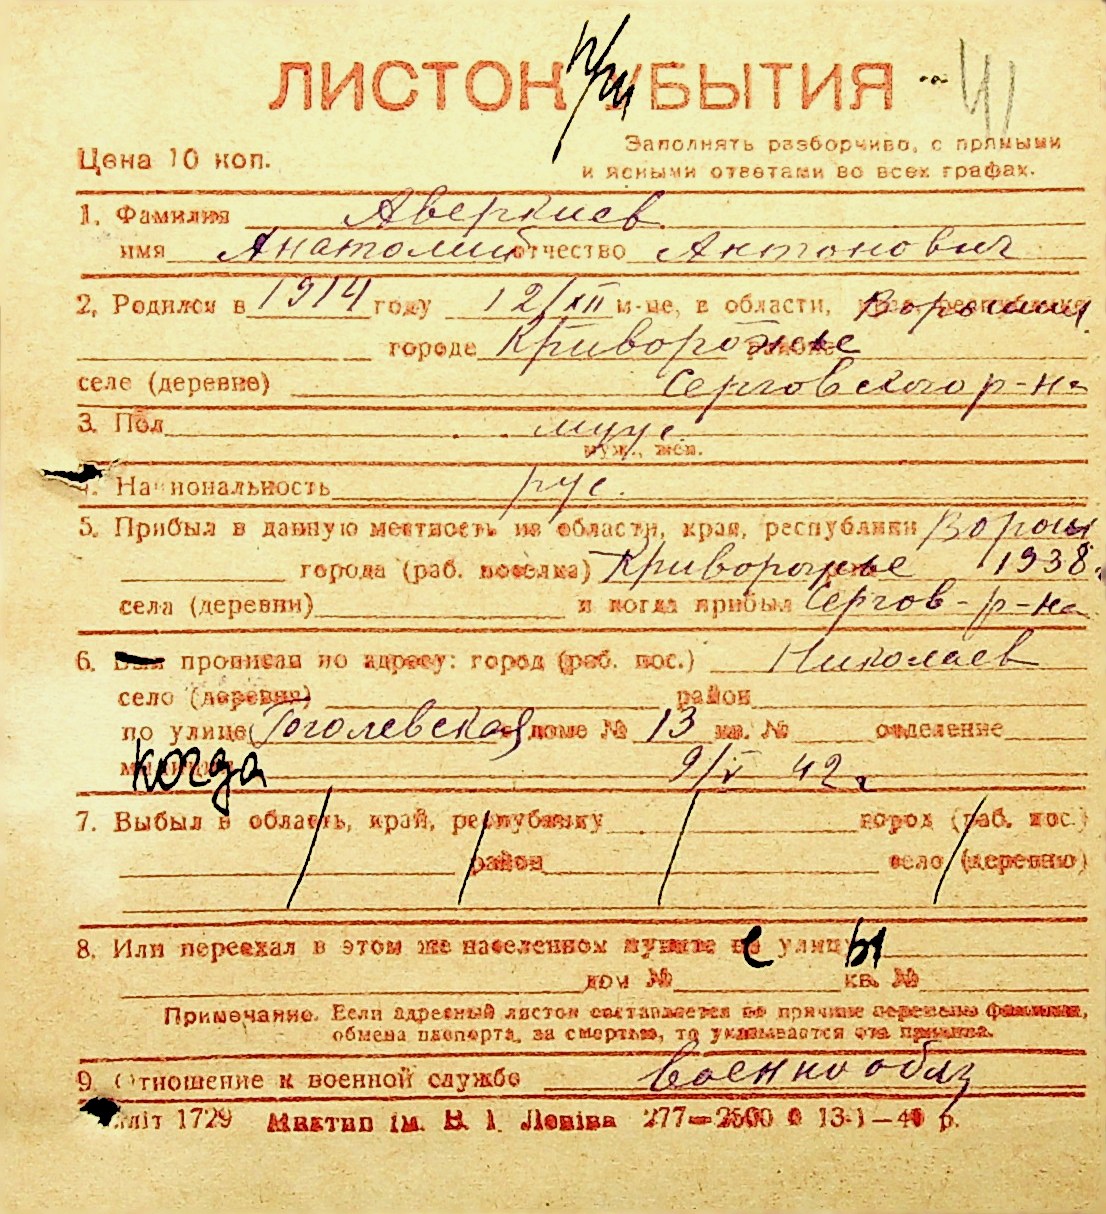 ЛИСТОК при УБЫТИЯ 41
Цена 10 коп.
Заполнять разборчиво, с прямыми
и ясными ответами во всех графах.
1. Фамилия Аверкиев
имя Анатолий отчество Антонович
2. Родился в 1914 году 12/XII м-це, в области,
городе Криворожье
селе (деревне) Серговского р-на
3. Пол муж.
муж., жен.
4. Национальность рус.
5. Прибыл в данную местность из области, края, республики
города (раб. поселка) Криворожье 1938 г.
села (деревни) и когда прибыл Сергов-р-на
6. прописан по адресу: город (раб. пос.) Николаев
село (деревня) район
по улице Гоголевская доме № 13 кв. № отделение
милиции когда 9/V 42 г
7. Выбыл в область, край, республику город (раб. пос.)
район село (деревню)
8. Или переехал в этом же населенном пункте с улицы
дом № кв. №
Примечание. Если адресный листок составляется по причине перемены фамилии,
обмена паспорта, за смертью, то указывается эта причина.
9. Отношение к военной службе военнообяз
міт 1729 Миктип ім. В. І. Леніна 277—2500 13-1—40 р.